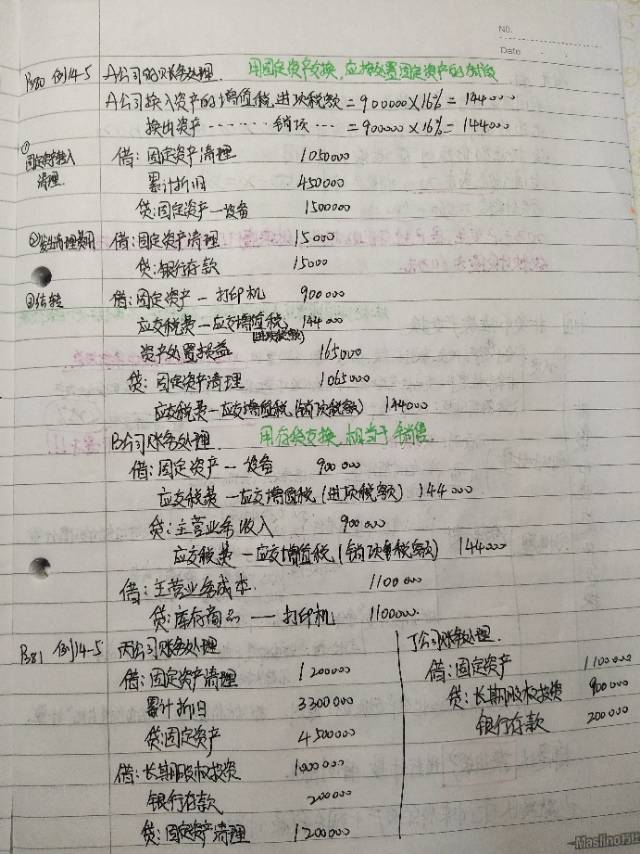 No.
Date
P380 例14-5 A公司的账务处理. 用固定资产交换,应按处置固定资产的做
A公司换入资产的增值税进项税额=900000×16%=144000
换出资产············销项···=900000×16%=144000
①
固定资产转入
清理.
借:固定资产清理 1050000
累计折旧 450000
贷:固定资产—设备 1500000
②发生清理费用 借:固定资产清理 15000
贷:银行存款 15000
③结转 借:固定资产—打印机 900000
应交税费—应交增值税 144000
(进项税额)
资产处置损益 165000
贷:固定资产清理 1065000
应交税费—应交增值税(销项税额) 144000
B公司账务处理 用存货交换,相当于销售.
借:固定资产—设备 900000
应交税费—应交增值税(进项税额) 144000
贷:主营业务收入 900000
应交税费—应交增值税(销项税额) 144000
借:主营业务成本. 1100000
贷:库存商品——打印机 1100000.
P381 例14-5 丙公司账务处理
借:固定资产清理 1200000
累计折旧 3300000
贷:固定资产 4500000
借:长期股权投资 1000000
银行存款 200000
贷:固定资产清理 1200000
丁公司账务处理.
借:固定资产 1100000
贷:长期股权投资 900000
银行存款 200000